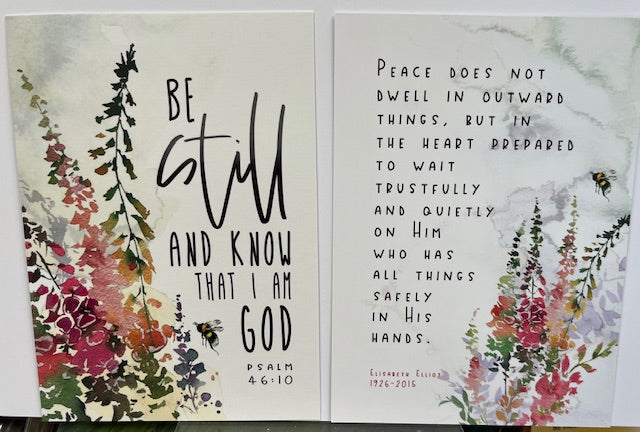 BE
still
AND KNOW
THAT I AM
GOD
PSALM
46:10
PEACE DOES NOT
DWELL IN OUTWARD
THINGS, BUT IN
THE HEART PREPARED
TO WAIT
TRUSTFULLY
AND QUIETLY
ON HIM
WHO HAS
ALL THINGS
SAFELY
IN HIS
HANDS.
ELISABETH ELLIOT
1926-2015